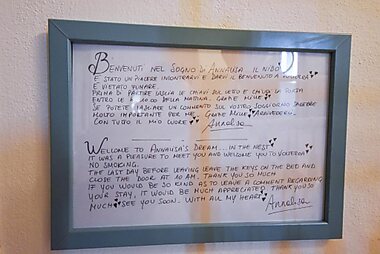 BENVENUTI NEL SOGNO DI ANNALISA IL NIDO
È STATO UN PIACERE INCONTRARVI E DARVI IL BENVENUTO A VOLTERRA
È VIETATO FUMARE
PRIMA DI PARTIRE LASCIA LE CHIAVI SUL LETTO E CHIUDI LA PORTA
ENTRO LE 10 DELLA MATTINA. GRAZIE MILLE
SE POTETE LASCIARE UN COMMENTO SUL VOSTRO SOGGIORNO SAREBBE
MOLTO IMPORTANTE PER ME. GRAZIE MILLE ARRIVEDERCI.
CON TUTTO IL MIO CUORE Annalisa
WELCOME TO ANNALISA'S DREAM... IN THE NEST
IT WAS A PLEASURE TO MEET YOU AND WELCOME YOU TO VOLTERRA
NO SMOKING.
THE LAST DAY BEFORE LEAVING LEAVE THE KEYS ON THE BED AND
CLOSE THE DOOR AT 10 AM. THANK YOU SO MUCH
IF YOU WOULD BE SO KIND AS TO LEAVE A COMMENT REGARDING
YOUR STAY, IT WOULD BE MUCH APPRECIATED. THANK YOU SO
MUCH SEE YOU SOON. WITH ALL MY HEART Annalisa